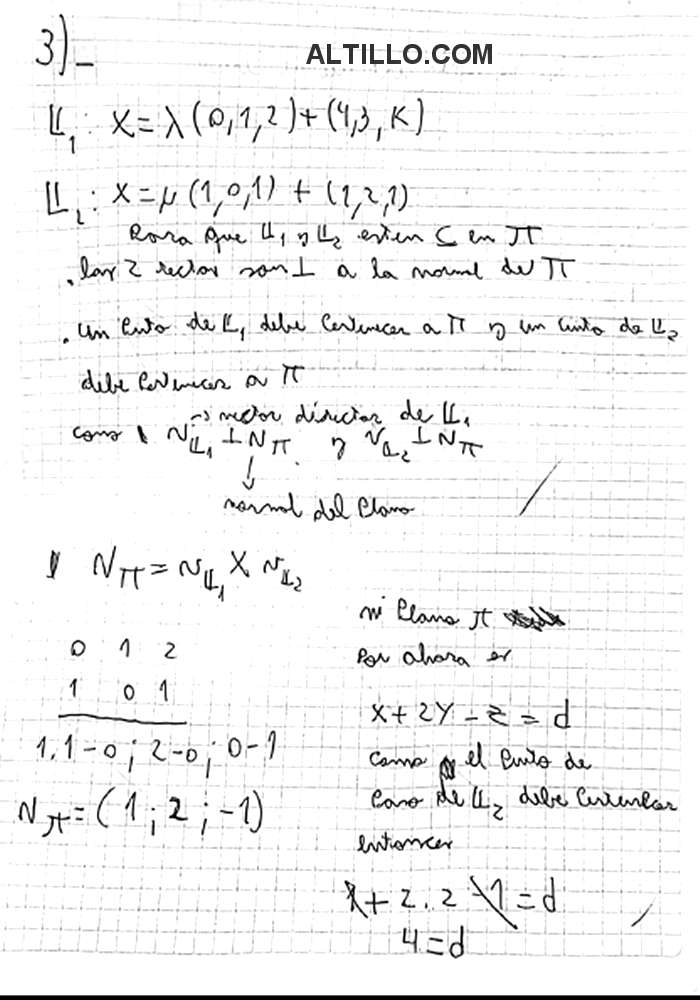 3)-
ALTILLO.COM
𝕃₁: X = λ(0,1,2)+(4,3,K)
𝕃₂: X = μ(1,0,1) + (1,2,1)
Para que 𝕃₁ y 𝕃₂ esten ⊂ en π
. las 2 rectas son ⊥ a la normal de π
. un Punto de 𝕃₁ debe Pertenecer a π y un Punto de 𝕃₂
debe Pertenecer a π
→ vector director de 𝕃₁
como V𝕃₁ ⊥ Nπ y V𝕃₂ ⊥ Nπ
↓
normal del Plano
Nπ = V𝕃₁ X V𝕃₂
0 1 2
1 0 1
1.1-0 ; 2-0 ; 0-1
Nπ = (1 ; 2 ; -1)
mi Plano π
Por ahora es
X + 2Y - Z = d
como el Punto de
Paso de 𝕃₂ debe
entonces
1 + 2.2 - 1 = d
4 = d